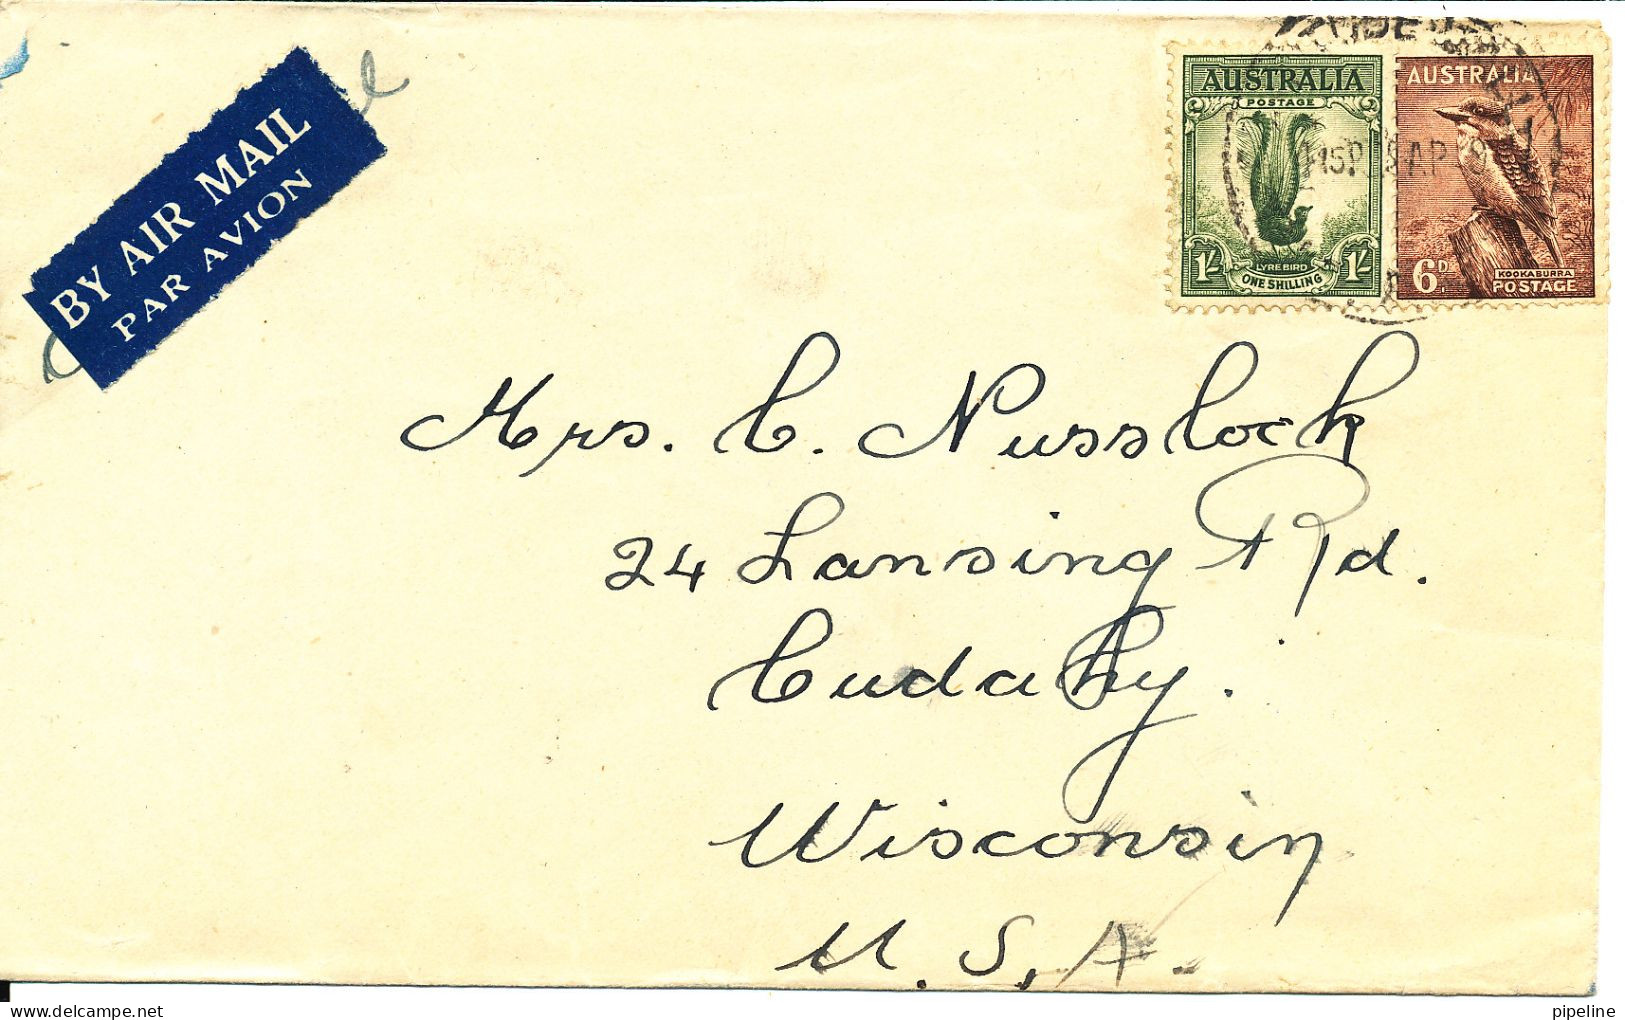 BY AIR MAIL
PAR AVION
AUSTRALIA
POSTAGE
1/- 1/-
LYRE BIRD
ONE SHILLING
AUSTRALIA
6D.
KOOKABURRA
POSTAGE
Mrs. C. Nusslock
24 Lansing Rd.
Cudahy.
Wisconsin
U. S. A.
pipeline